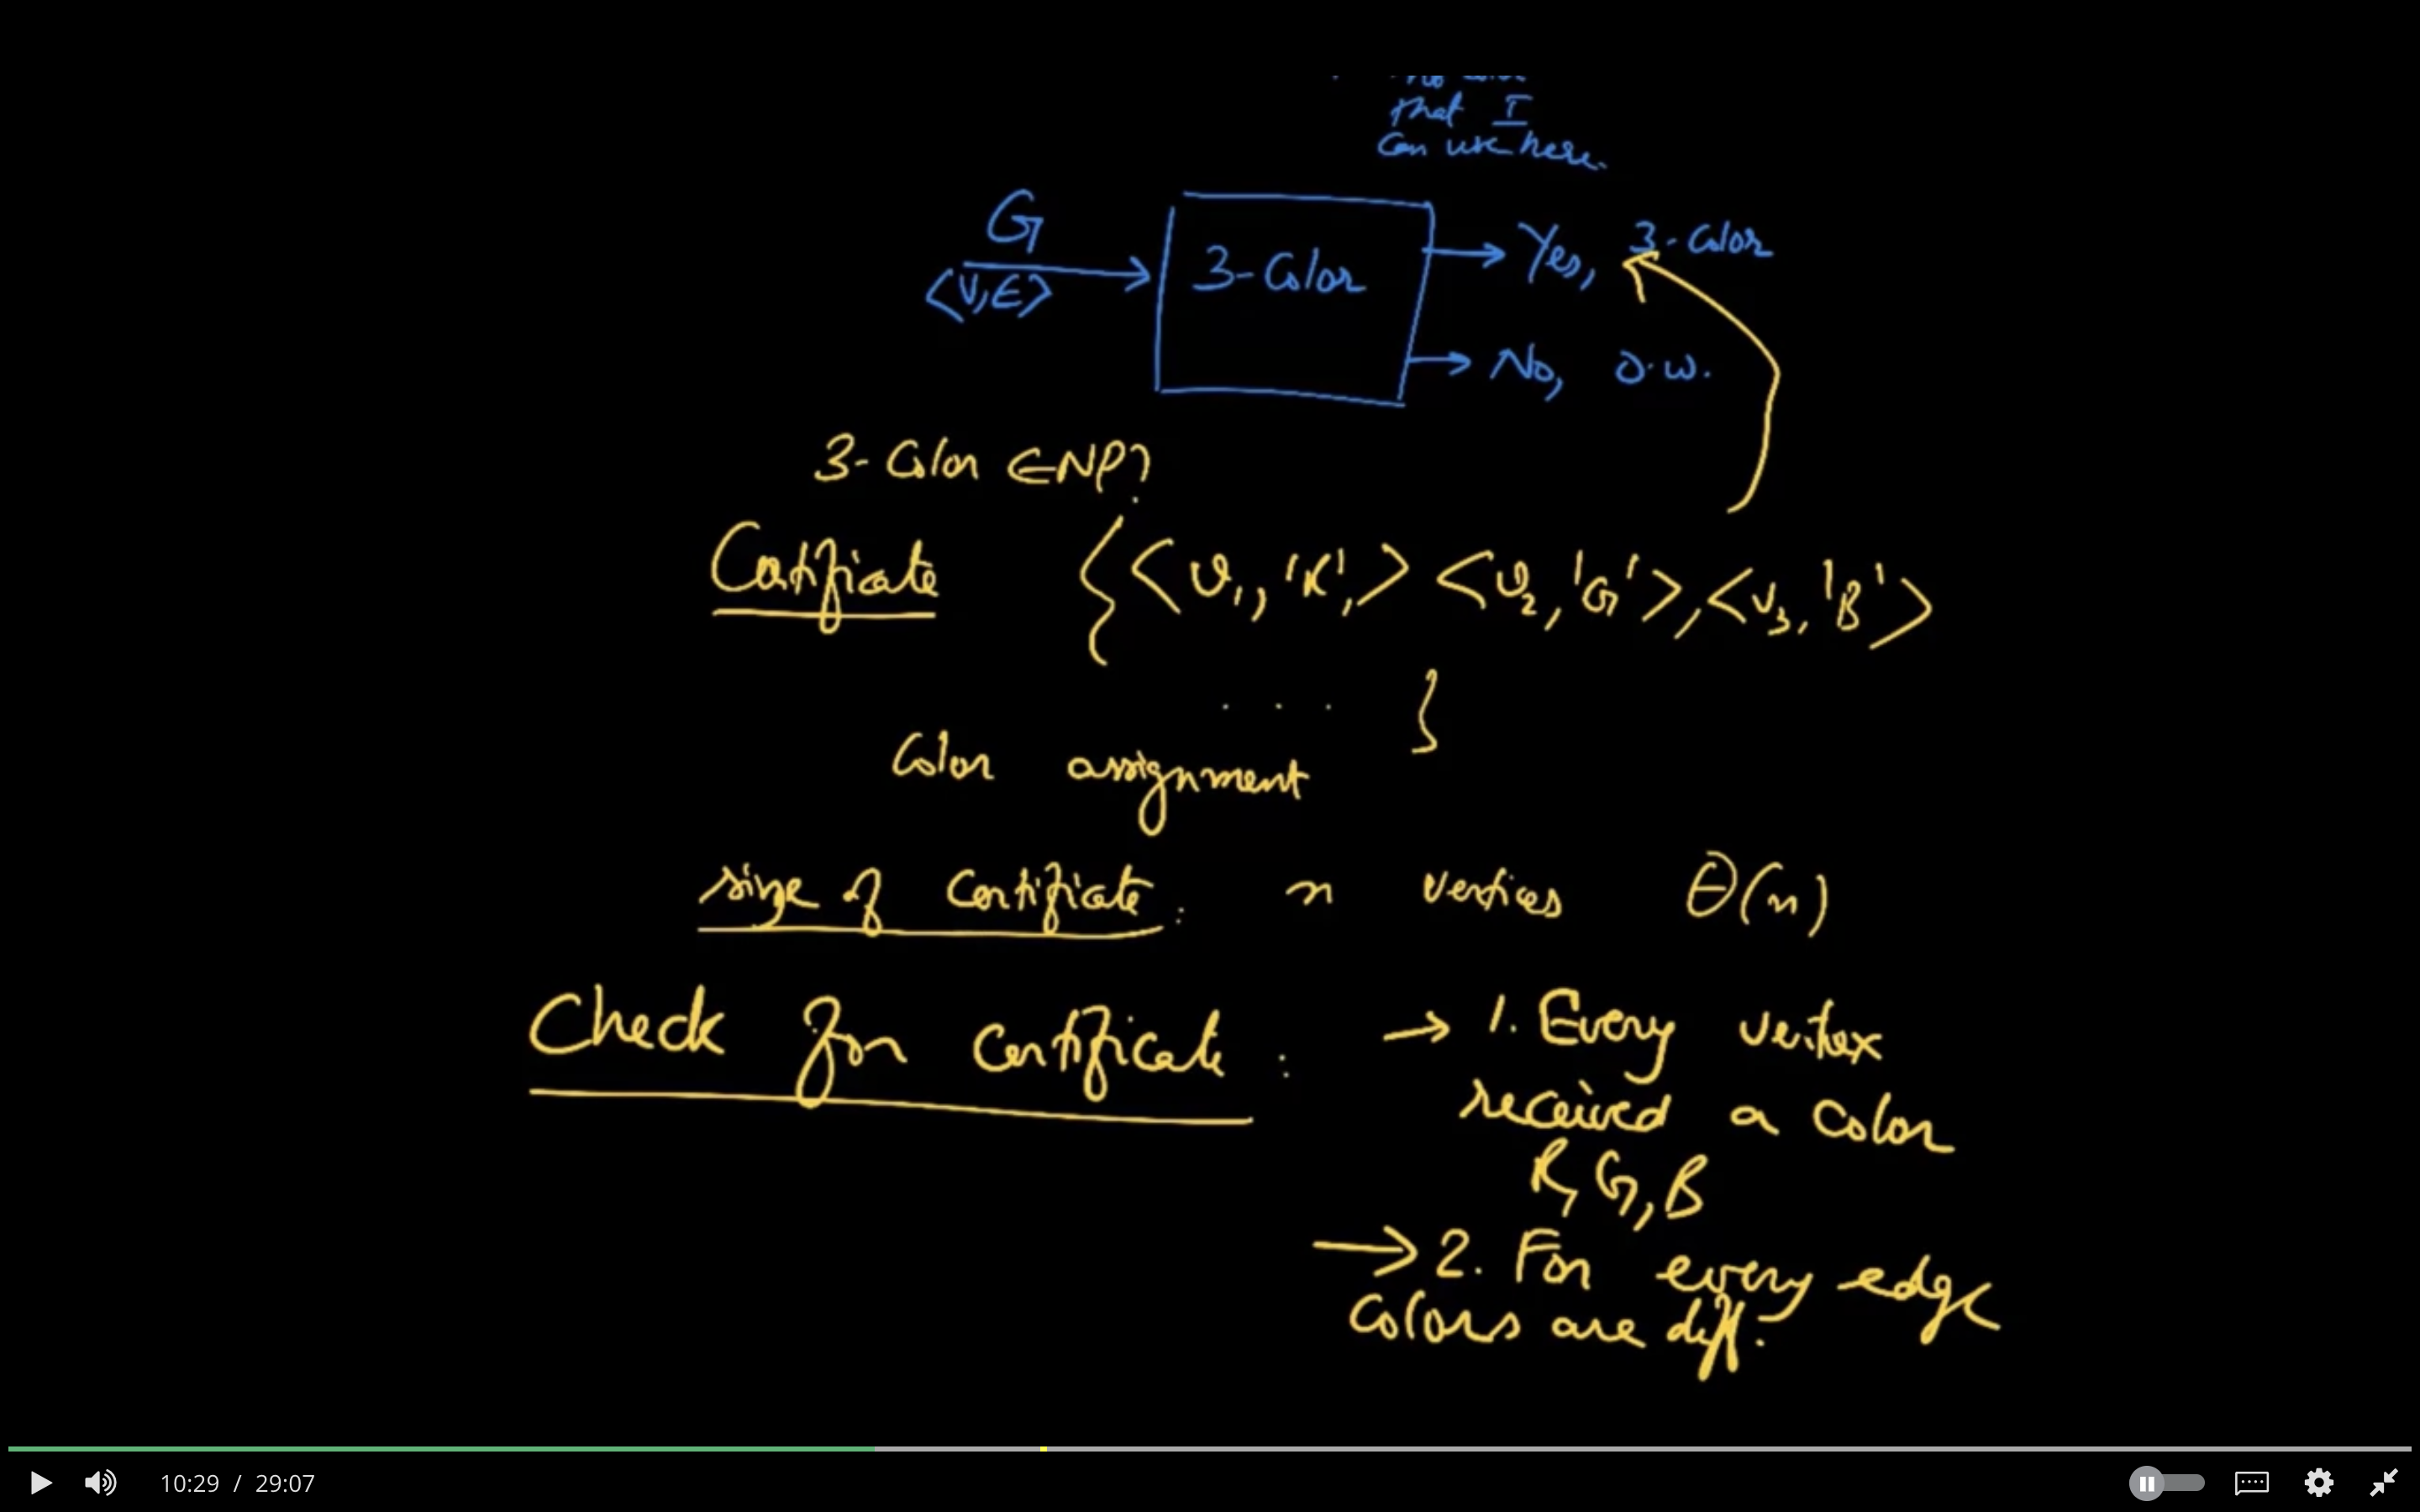 that I
Can use here.
G
<V,E>
3-Color
Yes, 3-Color
No, O.W.
3-Color ∈ NP?
Certificate { <v₁, 'R',> <v₂, 'G'>, <v₃, 'B'>
. . . }
Color assignment
size of Certificate: n vertices Θ(n)
Check for Certificate: → 1. Every vertex
received a Color
R, G, B
→ 2. For every edge
Colors are diff.
10:29 / 29:07